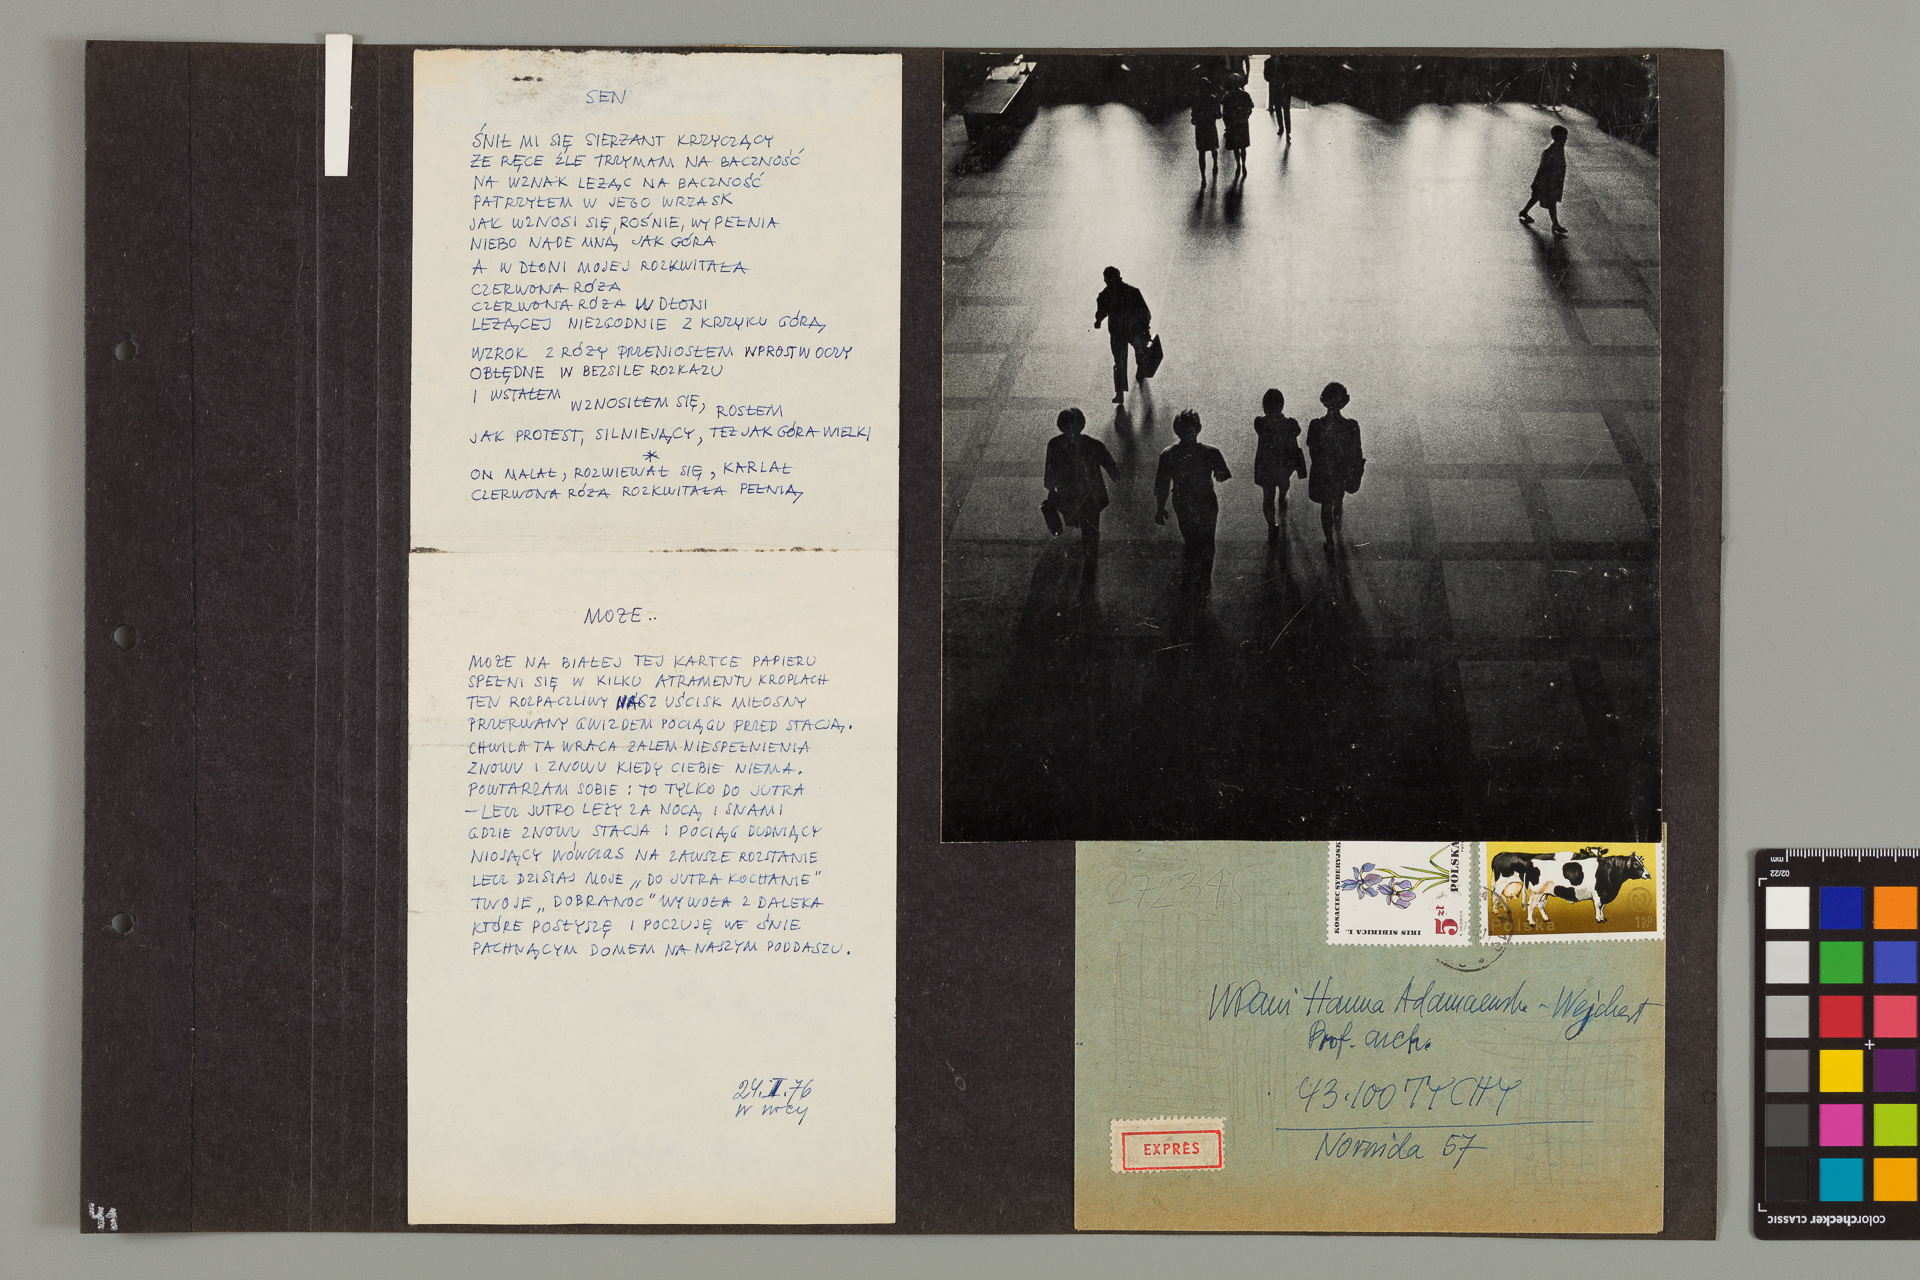 SEN
ŚNIŁ MI SIĘ SIERŻANT KRZYCZĄCY
ŻE RĘCE ŹLE TRZYMAM NA BACZNOŚĆ
NA WZNAK LEŻĄC NA BACZNOŚĆ
PATRZYŁEM W JEGO WRZASK
JAK WZNOSI SIĘ, ROŚNIE, WYPEŁNIA
NIEBO NADE MNĄ, JAK GÓRA
A W DŁONI MOJEJ ROZKWITAŁA
CZERWONA RÓŻA
CZERWONA RÓŻA W DŁONI
LEŻĄCEJ NIEZGODNIE Z KRZYKU GÓRĄ,
WZROK Z RÓŻY PRZENIOSŁEM WPROST W OCZY
OBŁĘDNE W BEZSILE ROZKAZU
I WSTAŁEM
WZNOSIŁEM SIĘ, ROSŁEM
JAK PROTEST, SILNIEJĄCY, TEŻ JAK GÓRA WIELKI
*
ON MALAŁ, ROZWIEWAŁ SIĘ, KARLAŁ
CZERWONA RÓŻA ROZKWITAŁA PEŁNIĄ
MOŻE..
MOŻE NA BIAŁEJ TEJ KARTCE PAPIERU
SPEŁNI SIĘ W KILKU ATRAMENTU KROPLACH
TEN ROZPACZLIWY NASZ UŚCISK MIŁOSNY
PRZERWANY GWIZDEM POCIĄGU PRZED STACJĄ.
CHWILA TA WRACA ŻALEM NIESPEŁNIENIA
ZNOWU I ZNOWU KIEDY CIEBIE NIEMA.
POWTARZAM SOBIE: TO TYLKO DO JUTRA
- LECZ JUTRO LEŻY ZA NOCĄ I SNAMI
GDZIE ZNOWU STACJA I POCIĄG DUDNIĄCY
NIOSĄCY WÓWCZAS NA ZAWSZE ROZSTANIE
LECZ DZISIAJ MOJE „DO JUTRA KOCHANIE"
TWOJE „DOBRANOC" WYWOŁA Z DALEKA
KTÓRE POSŁYSZĘ I POCZUJĘ WE ŚNIE
PACHNĄCYM DOMEM NA NASZYM PODDASZU.
24.II.76
w nocy
KOSACIEC SYBERYJSKI
IRIS SIBIRICA L.
5 zł
POLSKA
Polska
150
WPani Hanna Adamczewska-Wejchert
Prof. arch.
43.100 TYCHY
Nornida 57
EXPRÈS
41
mm
02/22
colorchecker CLASSIC